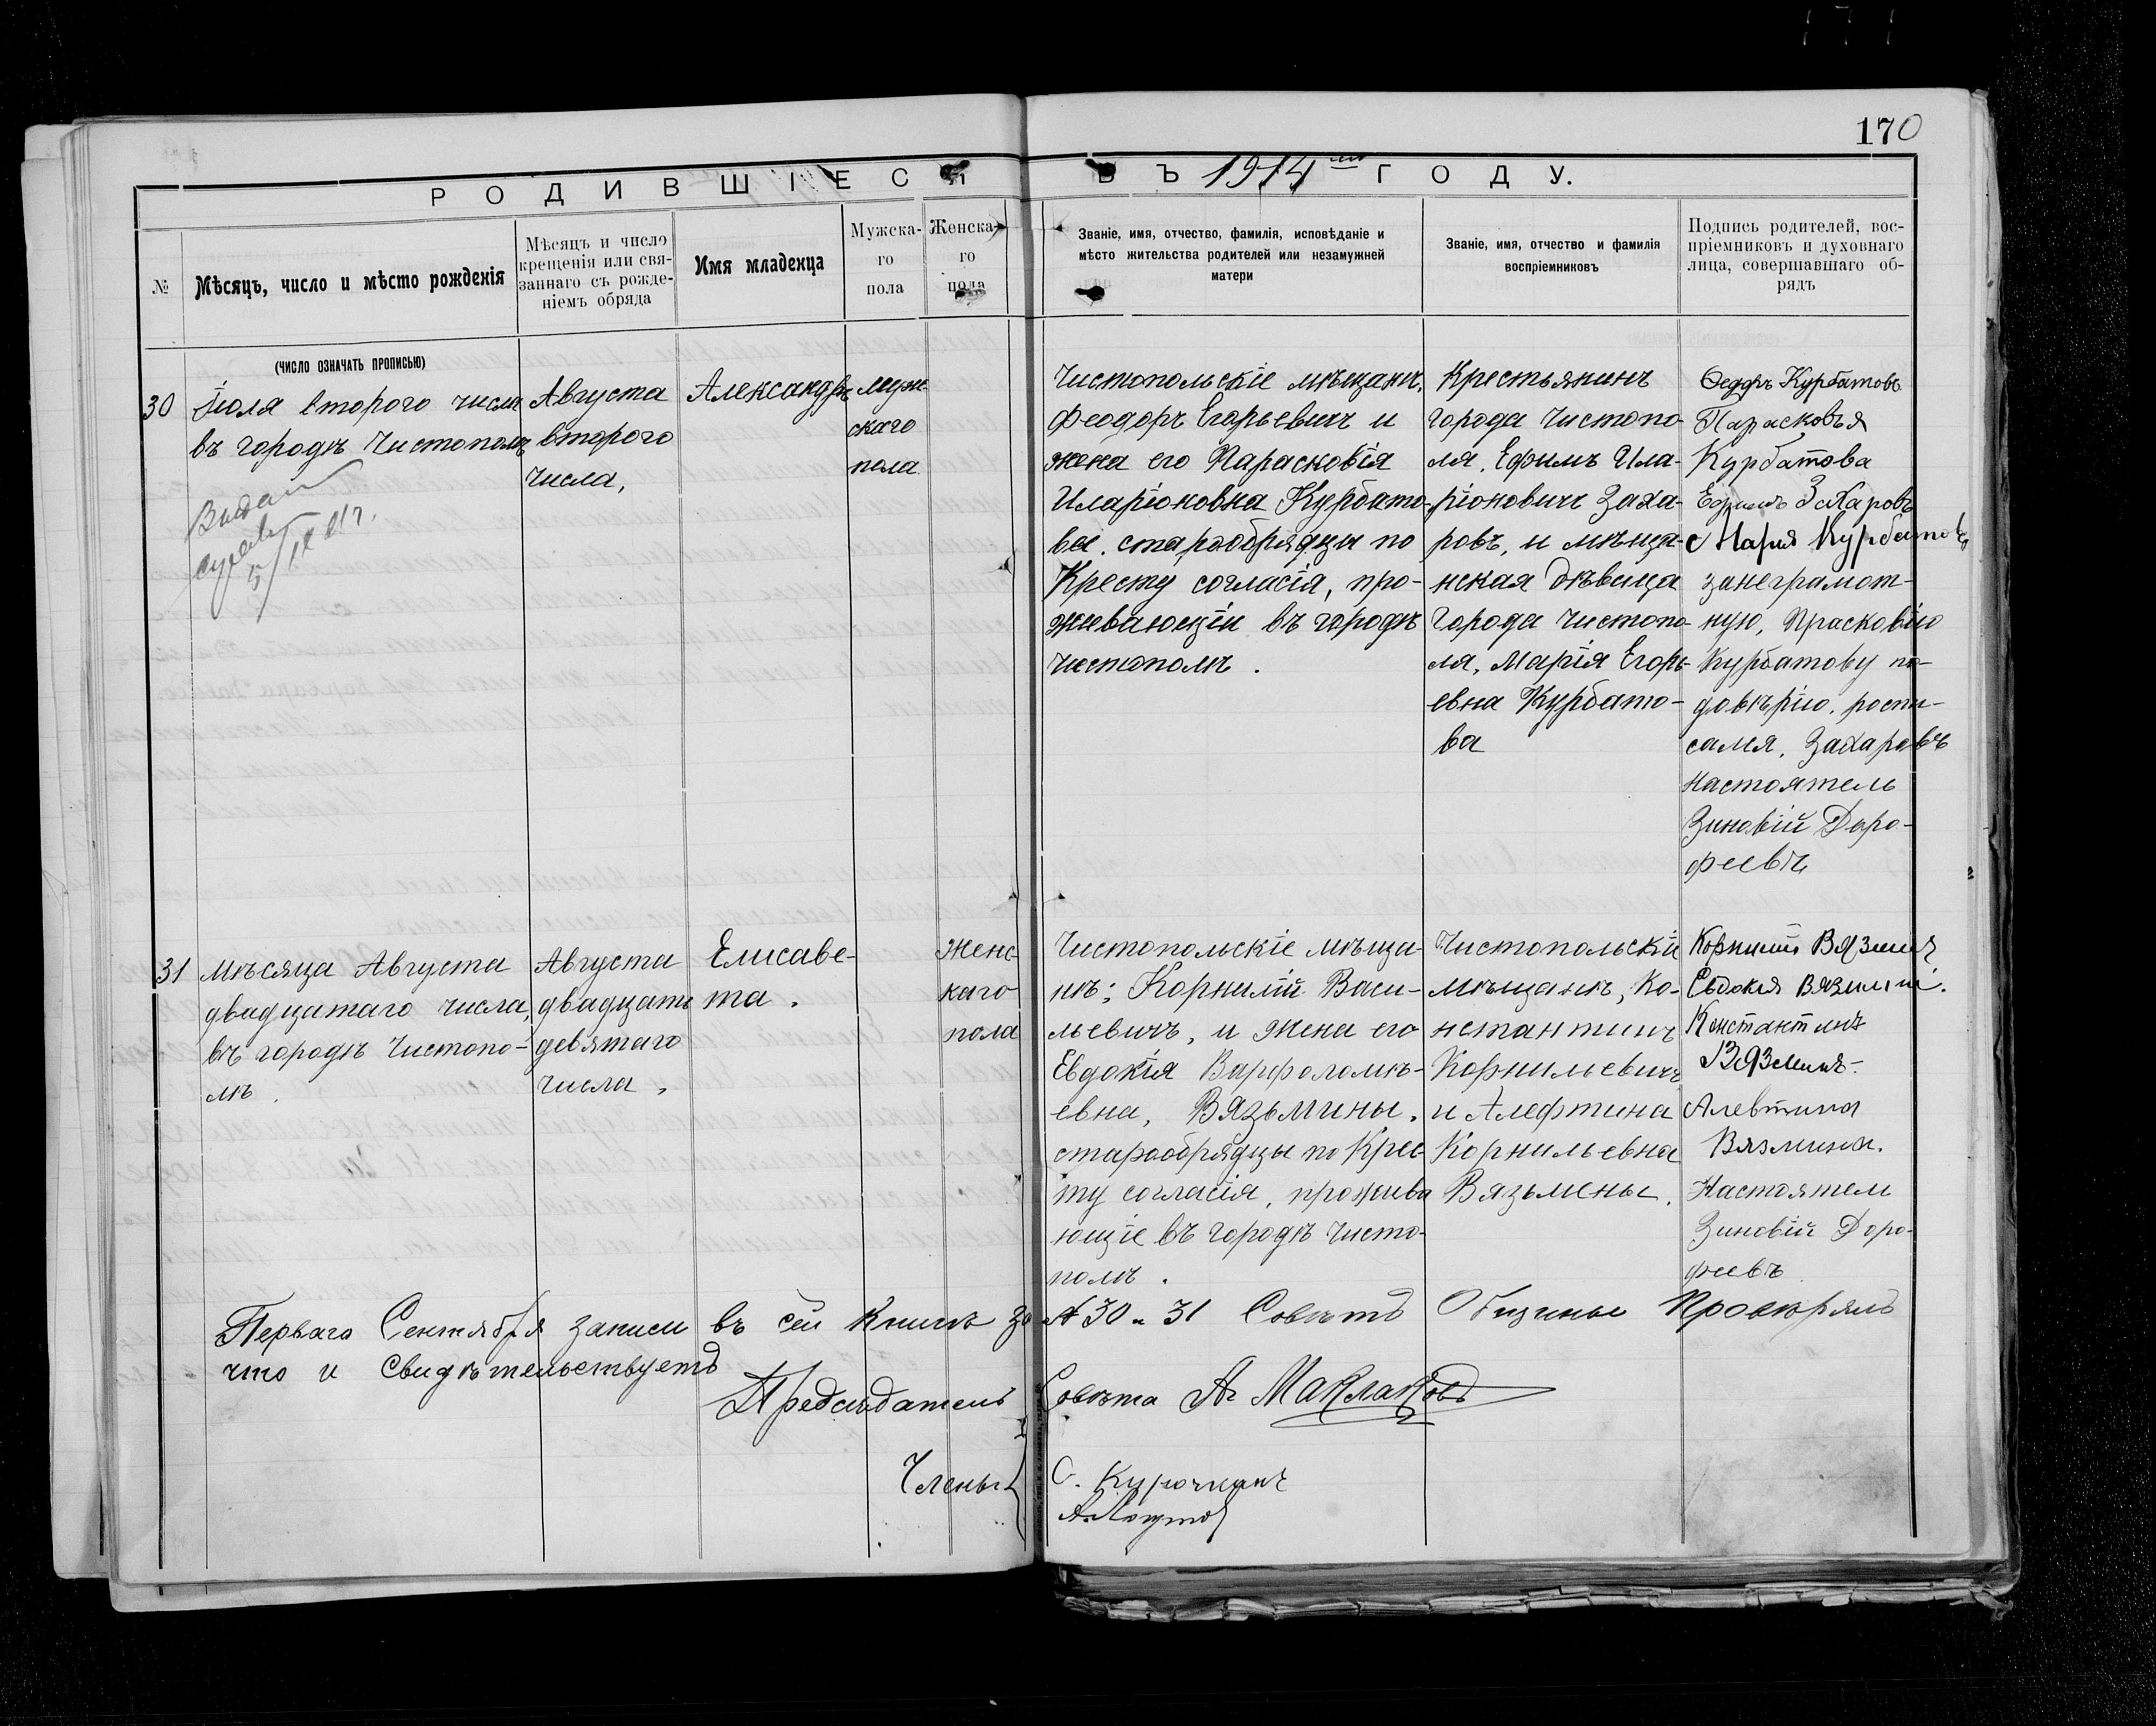 170
РОДИВШІЕСЯ ВЪ 1914 ГОДУ.
№
Мѣсяцъ, число и мѣсто рожденія
Мѣсяцъ и число
крещенія или свя-
заннаго съ рожде-
ніемъ обряда
Имя младенца
Мужска-
го
пола
Женска-
го
пола
Званіе, имя, отчество, фамилія, исповѣданіе и
мѣсто жительства родителей или незамужней
матери
Званіе, имя, отчество и фамилія
воспріемниковъ
Подпись родителей, вос-
пріемниковъ и духовнаго
лица, совершавшаго об-
рядъ
(ЧИСЛО ОЗНАЧАТЬ ПРОПИСЬЮ)
30
Іюля второго числа
въ городѣ Чистополѣ
Августа
второго
числа,
Александръ
муж
скаго
пола
Чистопольскіе мѣщане,
Феодоръ Егорьевичъ и
жена его Парасковія
Иларіоновна Курбато-
вы. старообрядцы по
Кресту согласія, про-
живающіи въ городѣ
Чистополѣ.
Крестьянинъ
города Чистопо-
ля, Ефимъ Ила-
ріоновичъ Заха-
ровъ, и мѣща-
нская дѣвица
города Чистопо-
ля, Марія Егорь-
евна Курбато-
ва
Ѳедоръ Курбатовъ
Парасковья
Курбатова
Ефимъ Захаровъ
Мария Курбатова
занеграмот-
ную, Прасковію
Курбатову по-
довѣрію, роспи-
сался, Захаровъ
Настоятель
Зиновій Доро-
феевъ
31
Мѣсяца Августа
двадцатаго числа,
въ городѣ Чистопо-
лѣ.
Августа
двадцать
девятаго
числа,
Елисаве-
та.
Женс-
каго
пола
Чистопольскіе мѣща-
нѣ; Корнилій Васи-
льевичъ, и жена его
Евдокія Варфоломѣ-
евна, Вязьмины.
старообрядцы по Крес-
ту согласія, прожива
ющіе въ городѣ Чисто-
полѣ.
Чистопольскіи
мѣщанѣ, Ко-
нстантинъ
Корнильевичъ
и Алефтина
Корнильевна
Вязьмены.
Корнилий Вяземинъ
Евдокия
Константинъ
Вязминъ.
Алевтина
Вязмина.
Настоятель
Зиновій Доро-
феевъ
Перваго Сентября записи въ сей Книгѣ за № 30 и 31 Совѣтъ Общины Провѣрялъ
что и Свидѣтельствуетъ
Председатель Совѣта А. Маклаковъ
Члены { С. Курочкинъ